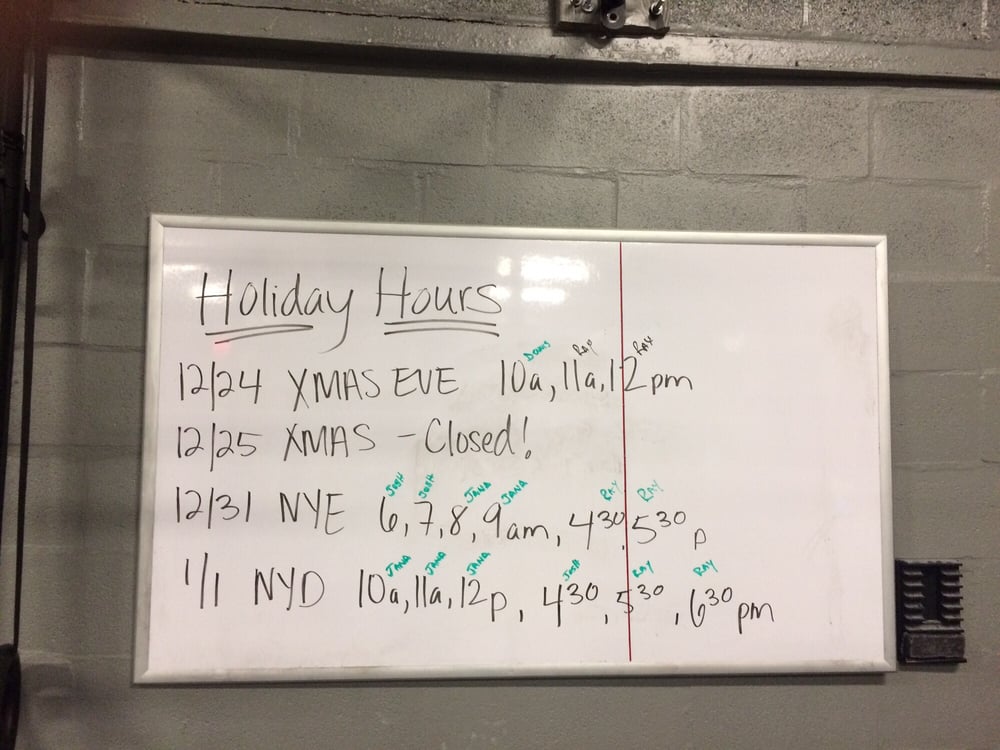 Holiday Hours
Ray Ray
12/24 XMAS EVE 10a, 11a, 12pm
12/25 XMAS - Closed!
JOSH JOSH JANA JANA RAY RAY
12/31 NYE 6, 7, 8, 9am, 4 30, 5 30 p
JANA JANA JANA JOSH RAY RAY
1/1 NYD 10a, 11a, 12p, 4 30, 5 30, 6 30 pm